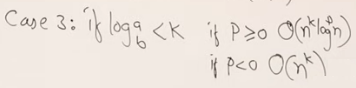 Case 3: if log_b^a < K if P≥0 O(n^k log^p n)
if P<0 O(n^k)